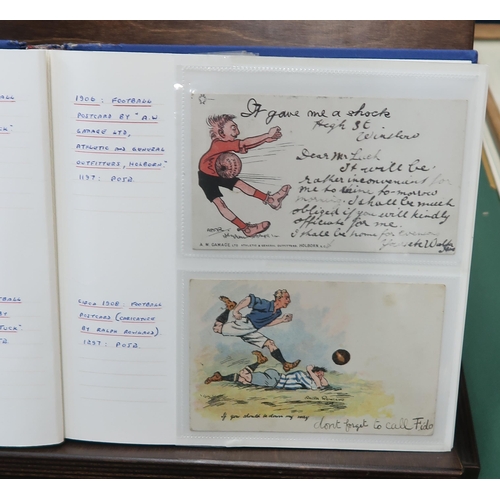 1906 : FOOTBALL
POSTCARD BY "A.W
GAMAGE LTD,
ATHLETIC AND GENERAL
OUTFITTERS, HOLBORN"
1197 : POSB.
UCK"
It gave me a shock
High St
Winslow
Dear Mr
It will be
rather inconvenient for
me to to-morrow
morning. I shall be much
obliged if you will kindly
officiate for me.
I shall be home for
A. W. GAMAGE LTD ATHLETIC & GENERAL OUTFITTERS HOLBORN E.C.
BALL
TUCK"
CIRCA 1908 : FOOTBALL
POSTCARD (CARICATURE
BY RALPH ROWLAND).
1297 : POSB.
If you should be down my way
dont forget to call Fido